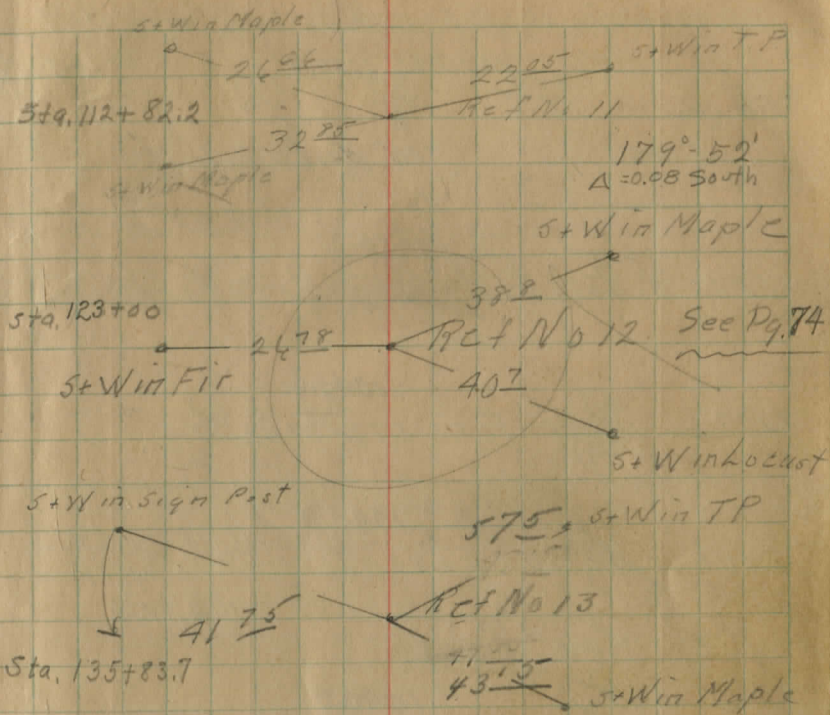 S+W in Maple
26 06
22 05
S+W in TP
Sta. 112+82.2
Ref No 11
32 85
S+W in Maple
179°-52'
Δ=0.08 South
S+W in Maple
38 8
Sta. 123+00
Ref No 12
See Pg. 74
24 78
S+W in Fir
40 7
S+W in Locust
S+W in Sign Post
57 5
S+W in TP
Ref No 13
41 75
Sta. 135+83.7
43 15
S+W in Maple